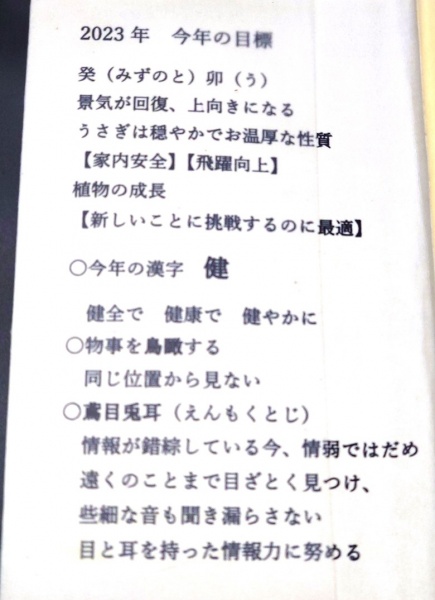 2023年　今年の目標
癸（みずのと）卯（う）
景気が回復、上向きになる
うさぎは穏やかでお温厚な性質
【家内安全】【飛躍向上】
植物の成長
【新しいことに挑戦するのに最適】
○今年の漢字　健
健全で　健康で　健やかに
○物事を鳥瞰する
同じ位置から見ない
○鳶目兎耳（えんもくとじ）
情報が錯綜している今、情弱ではだめ
遠くのことまで目ざとく見つけ、
些細な音も聞き漏らさない
目と耳を持った情報力に努める